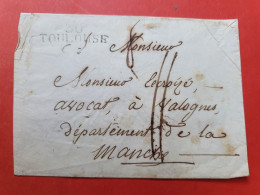 30
TOULOUSE
Monsieur
Monsieur lecroizé,
avocat, à Valognes,
Département de la
Manche